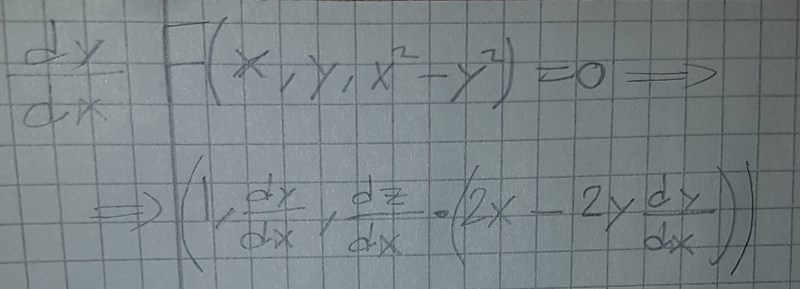 dy/dx F(x, y, x² - y²) = 0 ⟹
⟹ (1, dy/dx, dz/dx · (2x - 2y dy/dx))